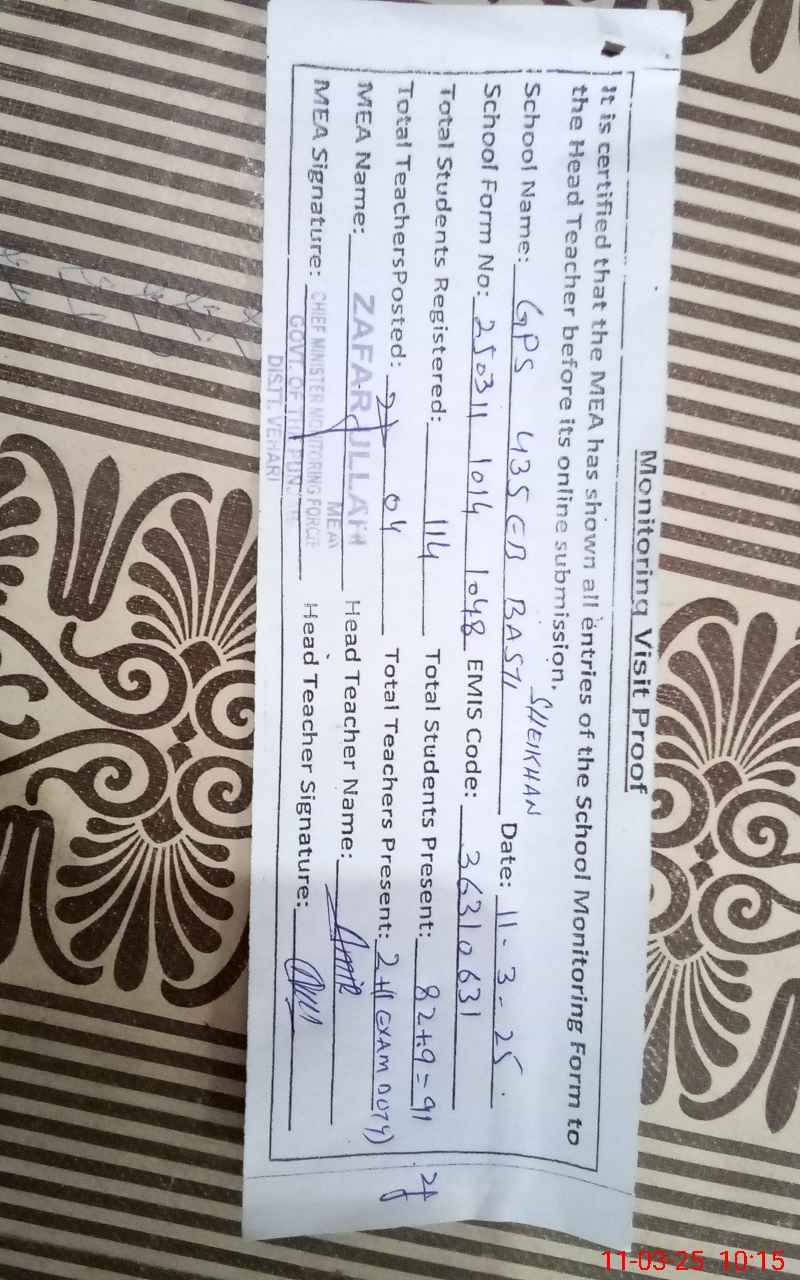 Monitoring Visit Proof
It is certified that the MEA has shown all entries of the School Monitoring Form to
the Head Teacher before its online submission.
School Name: GPS 435 EB BASTI SHEIKHAN Date: 11-3-25.
School Form No: 250311 1014 1048 EMIS Code: 36310631
Total Students Registered: 114 Total Students Present: 82+9=91
Total TeachersPosted: 04 Total Teachers Present: 2+1(EXAM DUTY)
MEA Name: ZAFAR ULLAH Head Teacher Name:
MEA
MEA Signature: Head Teacher Signature:
CHIEF MINISTER MONITORING FORCE
GOVT. OF THE PUNJAB
DISTT. VEHARI
11-03-25 10:15